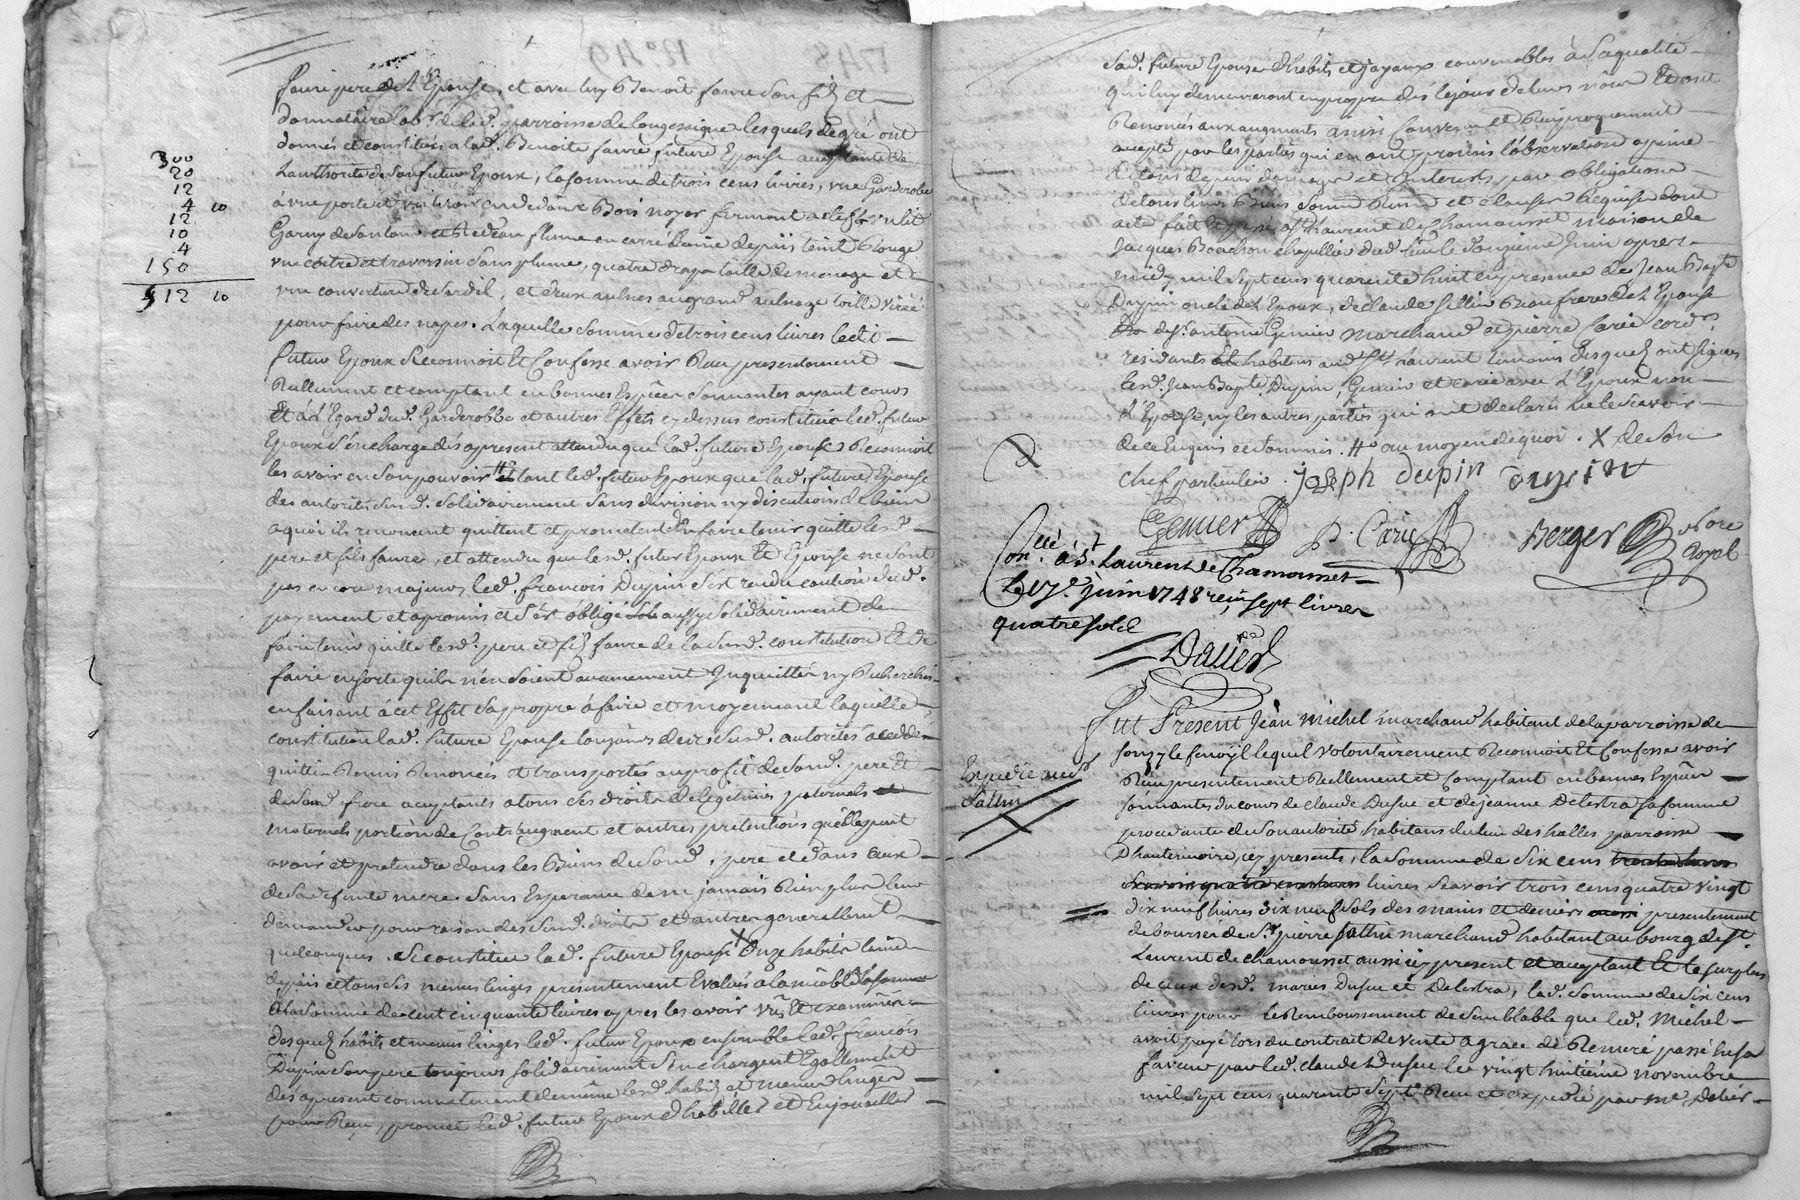 faure pere de l'Epouse, et avec luy Benoit faure son filz et
donnataire lab.r de lad. parroisse de longesaigne lesquels de gré ont
donnés et constitués a lad. Benoite faure future Epouse acceptante de
Lauthorité de son futur Epoux, la somme de trois cens livres, une Garderobe
à une porte et un tiroir en dedans Bois noyer fermant a clef, un lit
Garny de son tour et Rideau flame en carré Laine de païs teint Rouge
une coitre et traversin sans plume, quatre draps toille de menage et
une couverture de cardel, et deux aulnes au grand aulnage toille
pour faire des napes. Laquelle somme de trois cens livres ledit
futur Epoux Reconnoit Et Confesse avoir Reçu presentement
Réellement et comptant en bonnes Espèces sonnantes ayant cours
Et à l'Egard dud. Garderobbe et autres Effets cy dessus constitués led. futur
Epoux s'en charge dés apresent attendu que lad. future Epouse Reconnoit
les avoir en son pouvoir # et tant led. futur Epoux que lad. future Epouse
des autorités susd. solidairement sans division ny discution de biens
a quoi ils renoncent quittent et promettent En faire tenir quitte lesd.
pere et fils faure, et attendu que lesd. futur Epoux Et Epouse ne sont
pas encore majeurs led. françois Dupin s'est rendu caution dud.
payement et a promis et s'est obligé aussy solidairement de
faire tenir quitte lesd. pere et filz faure de la susd. constitution Et de
faire en sorte quils n'en soient aucunement Inquiettés ny Recherchés
en faisant à cet Effet sa propre affaire et moyennant laquelle
constitution lad. future Epouse toujours des susd. autorités a cedé
quitté Remis Renoncé et transporté au profit de sond. pere Et
de sond. frere acceptants a tous ses droits de legitimes paternels et
maternels portion de Contr'augment et autres pretentions quelle peut
avoir et pretendre dans les Biens de sond. pere et dans ceux
de sa defunte mere sans Esperance de ne jamais Rien plus leur
demander pour raison des susd. droits et d'autres generallement
quelconques. se constitue lad. future Epouse X onze habits laine
de païs et tous ses menus linges presentement Evalués a lamiable
a la somme de cent cinquante livres apres les avoir vüs Et examinés
desquelz habits et menus linges led. futur Epoux ensemble led. françois
Dupin son pere toujours solidairement s'en chargent Egallement
dés apresent comme tenant de même lesd. habits et menus linges
pour Reçu, promet led. futur Epoux d'habiller et Enjoailler
300
20
12
4 10
12
10
4
150
512 10
sad. future Epouse d'habits et joyaux convenables à sa qualité
qui luy demeureront en propre dés le jour de leurs nôces Et ont
Renoncés aux augments ainsi Convenu et Reciproquement
accepté par les parties qui en ont promis l'observation a peine
de tous depens domages et Interets par obligation
de tous leurs Biens soumission Renon et clauses Requise dont
acte fait et passé a St Laurent de Chamousset maison de
Jacques Bouchon chapellier dud. lieu le douzieme Juin apres
midy mil sept cens quarante huit en presence de Jean Bapte
Dupin oncle de l'Epoux, de claude Beau frere de l'Epouse
de sr. antoine Genuer marchand et pierre Carie cord.r
residants et habitans aud. St Laurent temoins desquelz ont signes
lesd. Jean Bapte Dupin, Genuer et carie avec l'Epoux non
l'Epouse, ny les autres parties qui ont declarés ne le sçavoir
de ce Enquis et sommés. # au moyen de quoi. X de son
chef particulier. joseph dupin dupin
Genuer P. Carie Berger nore Royal
Conllé. à St. Laurent de Chamousset
Le 17.e juin 1748 reçu sept livres
quatre sols
Dalier
Fut Present Jean Michel marchand habitant de la parroisse de
souzy lequel volontairement Reconnoit Et Confesse avoir
Reçu presentement Reellement et Comptant en bonnes Espèces
sonnantes du cours de claude Dusuc et de jeanne Delestra sa femme
procedante de son autorité habitans du lieu des halles parroisse
D'hauterivoire, icy presents, la somme de six cens
livres sçavoir trois cens quatre vingt
dix neuf livres dix neuf sols des mains et deniers presentement
deboursés de Sr. pierre marchand habitant au bourg de St.
Laurent de chamousset aussi icy present et acceptant Et le surplus
de ceux desd. mariés Dusuc et Delestra, lad. somme de six cens
livres pour le Remboursement de semblable que led. Michel
avoit payé lors du contrat de vente a grace de Remeré passé en sa
faveur par led. claude Dusuc le vingt huitieme novembre
mil sept cens quarante sept Reçu et expedié par me Dalier
Expedié aud.